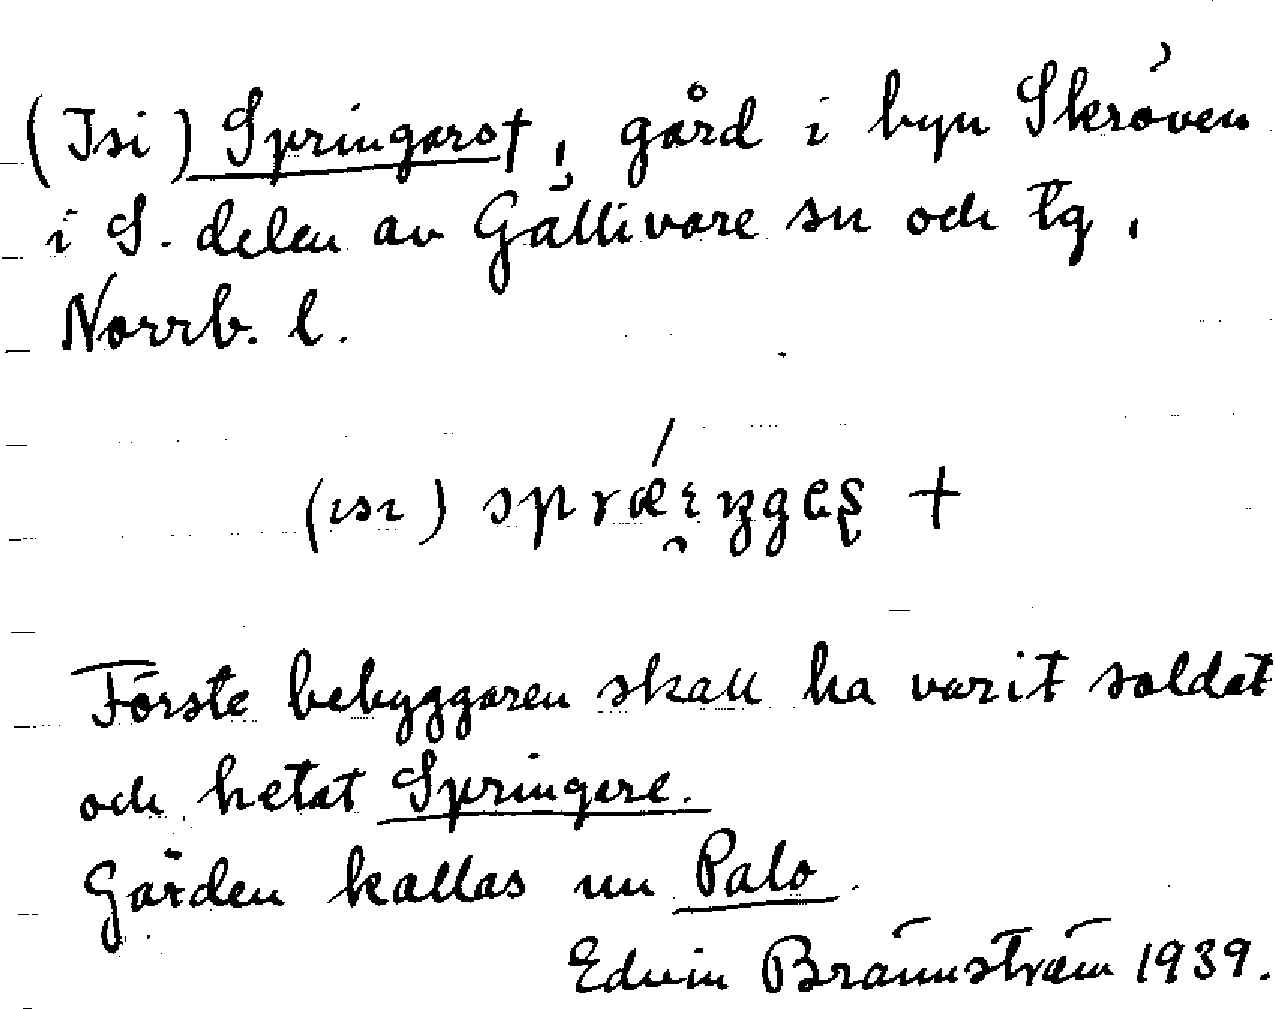 (Isi) Springarst, gård i byn Skröven
i S. delen av Gällivare sn och tg,
Norrb. l.
(ısı)
Förste bebyggaren skall ha varit soldat
och hetat Springare.
Gården kallas nu Palo.
Edvin Brännström 1939.